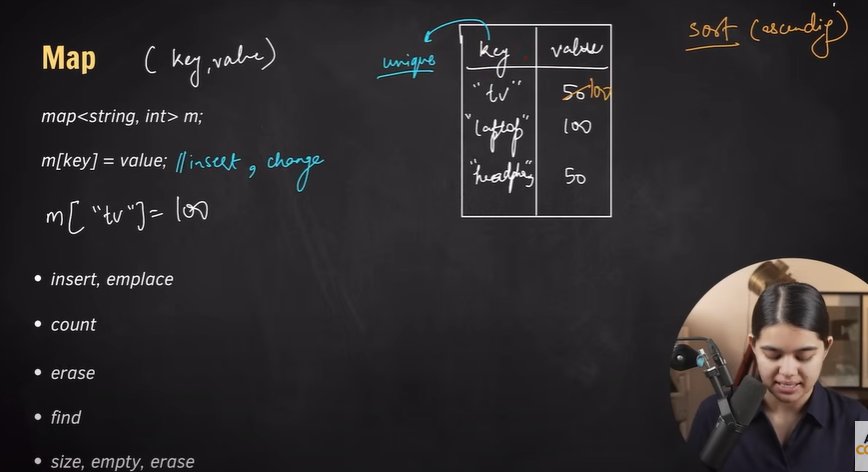 Map (key, value)
map<string, int> m;
m[key] = value; //insert, change
m["tv"] = 100
• insert, emplace
• count
• erase
• find
• size, empty, erase
unique
key value
"tv" 50 100
"laptop" 100
50
sort (ascendig)